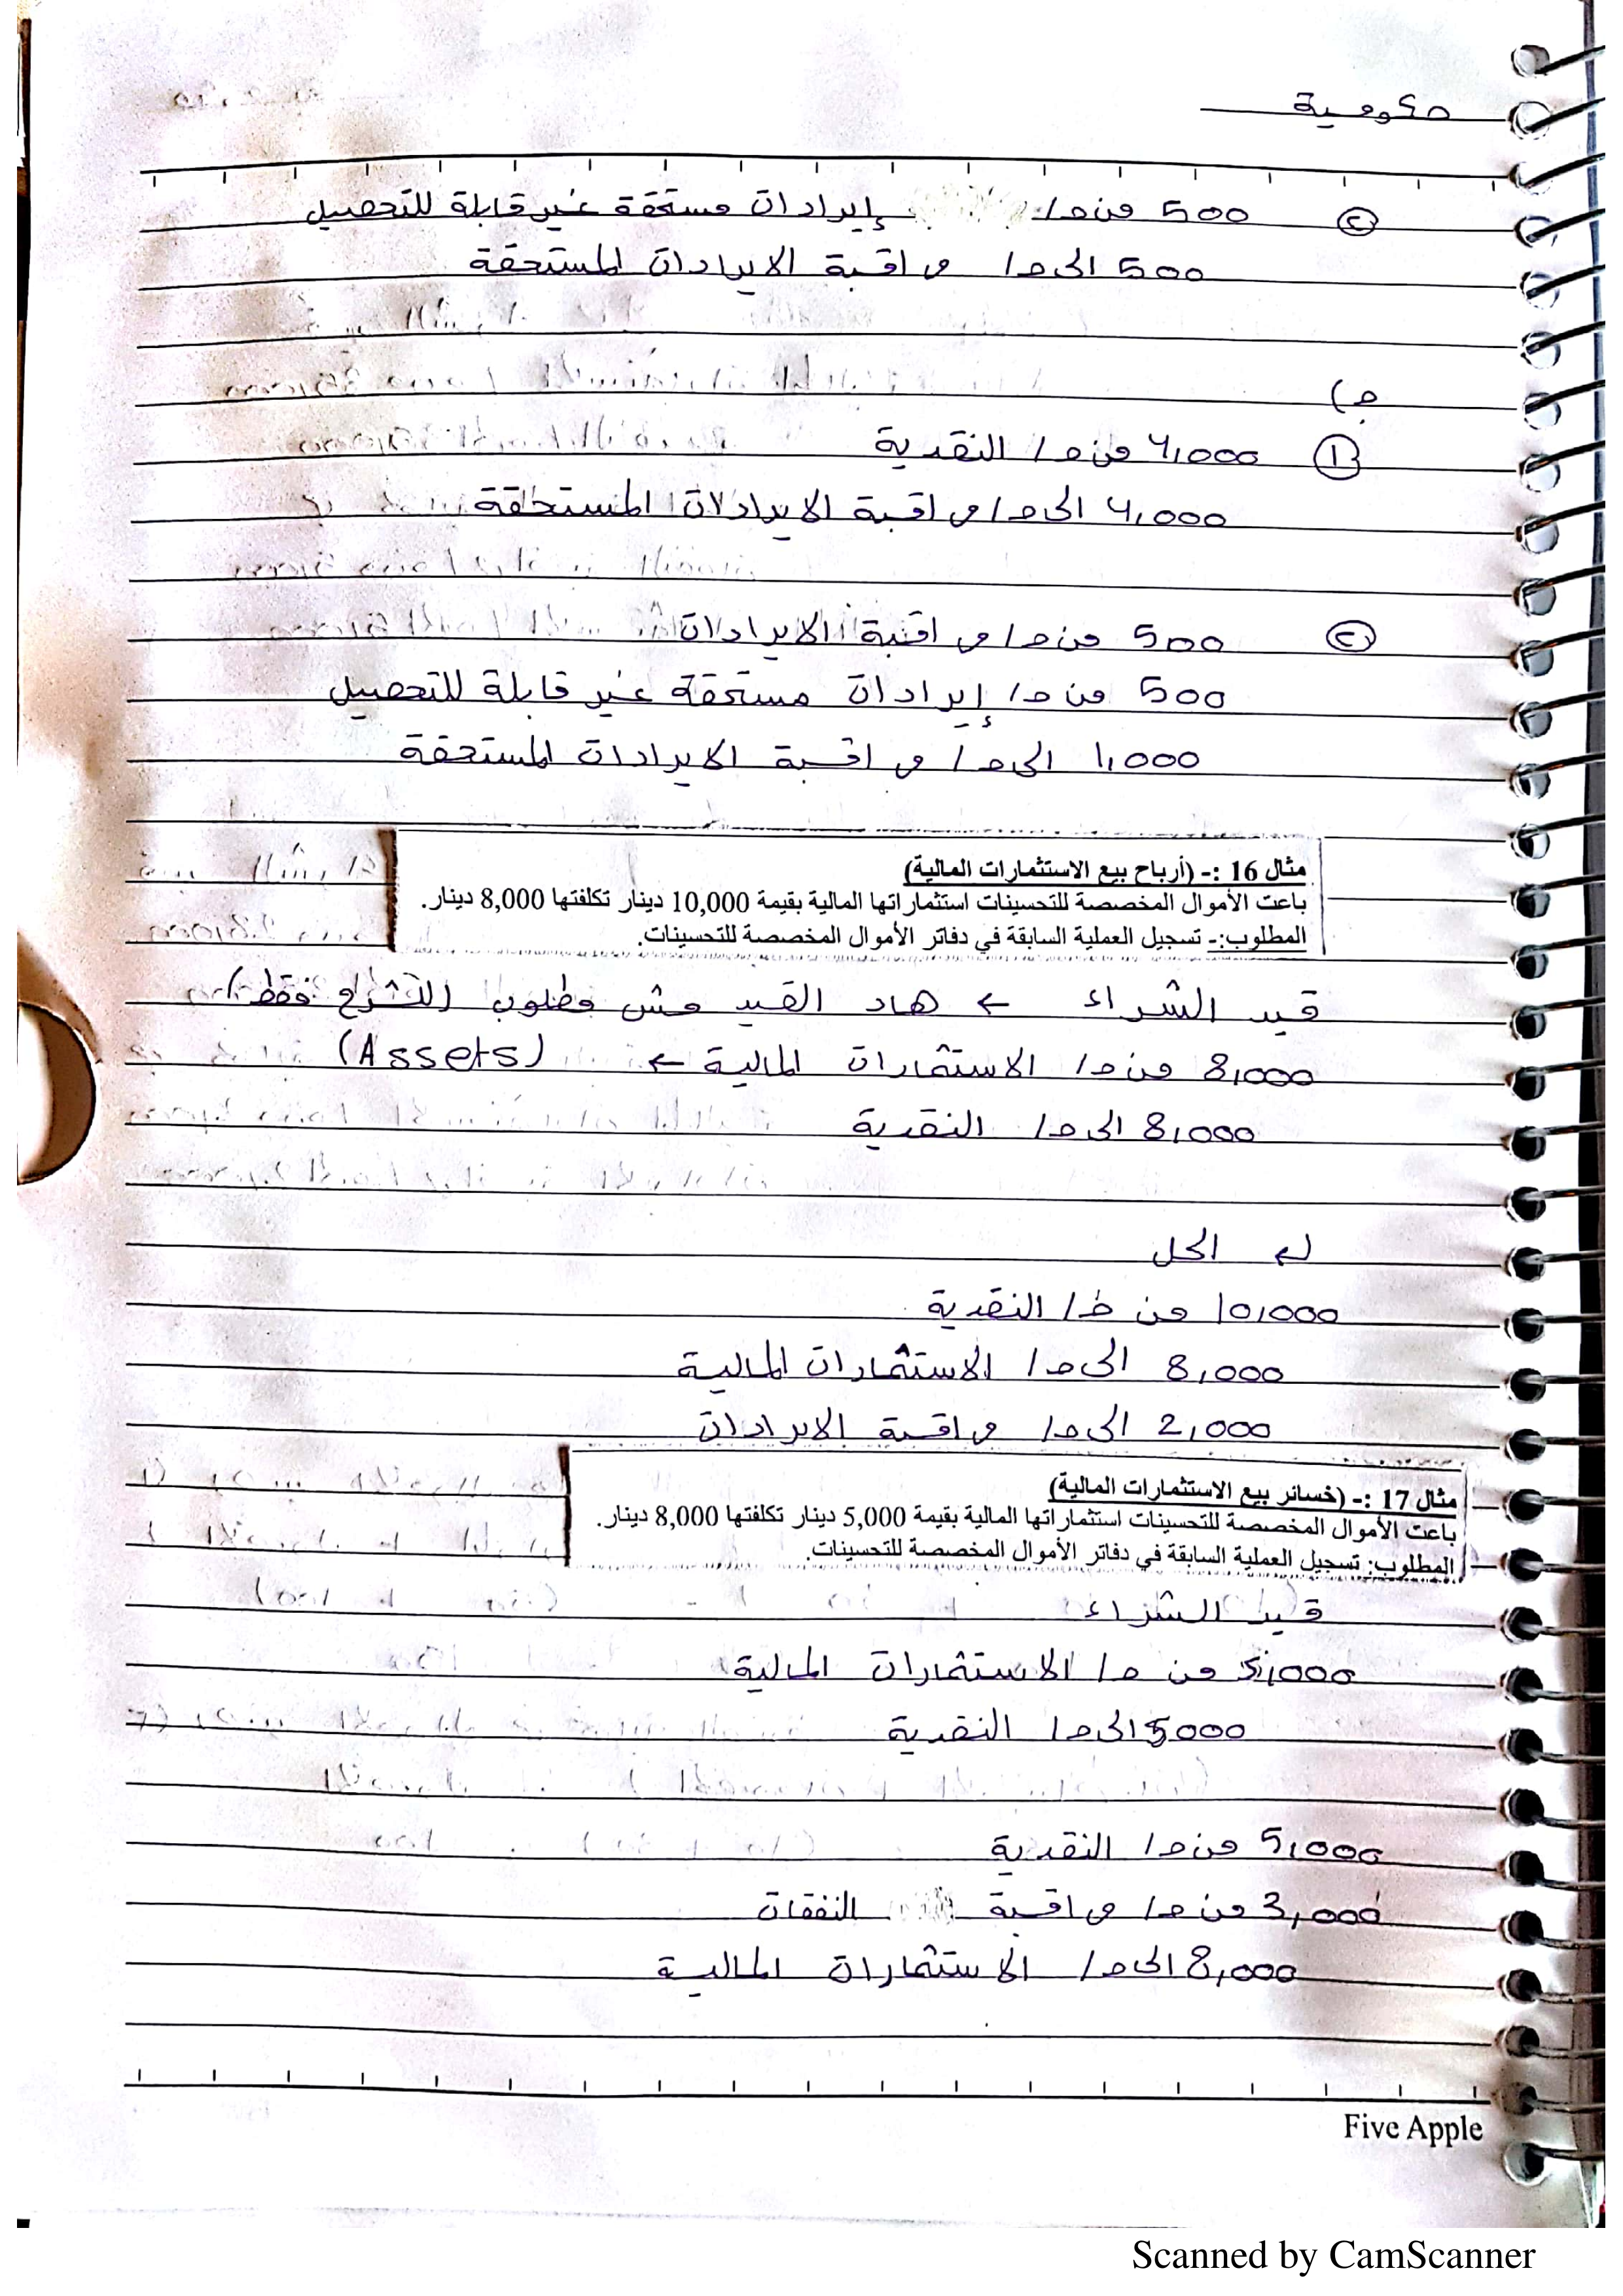 حكومية
② 500 من ح/ إيرادات مستحقة غير قابلة للتحصيل
500 الى ح/ مراقبة الايرادات المستحقة
ج)
① 4,000 من ح/ النقدية
4,000 الى ح/ مراقبة الايرادات المستحقة
② 500 من ح/ مراقبة الايرادات
500 من ح/ إيرادات مستحقة غير قابلة للتحصيل
1,000 الى ح/ مراقبة الايرادات المستحقة
مثال 16 :- (أرباح بيع الاستثمارات المالية)
باعت الأموال المخصصة للتحسينات استثماراتها المالية بقيمة 10,000 دينار تكلفتها 8,000 دينار.
المطلوب:- تسجيل العملية السابقة في دفاتر الأموال المخصصة للتحسينات.
قيد الشراء ← هاد القيد مش مطلوب (للشرح فقط)
8,000 من ح/ الاستثمارات المالية ← (Assets)
8,000 الى ح/ النقدية
↳ الحل
10,000 من ح/ النقدية
8,000 الى ح/ الاستثمارات المالية
2,000 الى ح/ مراقبة الايرادات
مثال 17 :- (خسائر بيع الاستثمارات المالية)
باعت الأموال المخصصة للتحسينات استثماراتها المالية بقيمة 5,000 دينار تكلفتها 8,000 دينار.
المطلوب: تسجيل العملية السابقة في دفاتر الأموال المخصصة للتحسينات.
قيد الشراء
5,000 من ح/ الاستثمارات المالية
5000 الى ح/ النقدية
5,000 من ح/ النقدية
3,000 من ح/ مراقبة النفقات
8,000 الى ح/ الاستثمارات المالية
Five Apple
Scanned by CamScanner